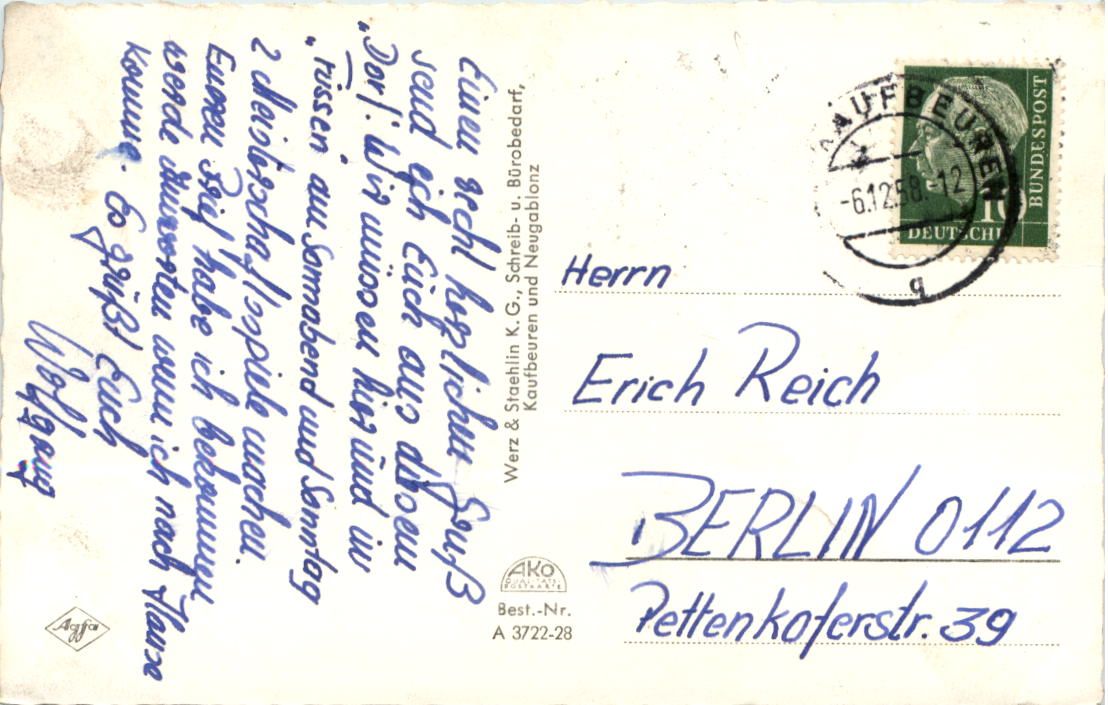 Einen recht herzlichen Gruß
send ich Euch aus diesem
„Dorf". Wir müssen hier und in
„Füssen" am Sonnabend und Sonntag
2 Meisterschaftsspiele machen.
Euren Brief habe ich bekommen
werde antworten wenn ich nach Hause
komme. Es grüßt Euch
Wolfgang
Werz & Staehlin K. G., Schreib- u. Bürobedarf,
Kaufbeuren und Neugablonz
AKO
QUALITÄTS-
POSTKARTE
Best.-Nr.
A 3722-28
Agfa
KAUFBEUREN
-6.12.58.-12
b
10
DEUTSCHE
BUNDESPOST
Herrn
Erich Reich
BERLIN 0112
Pettenkoferstr. 39